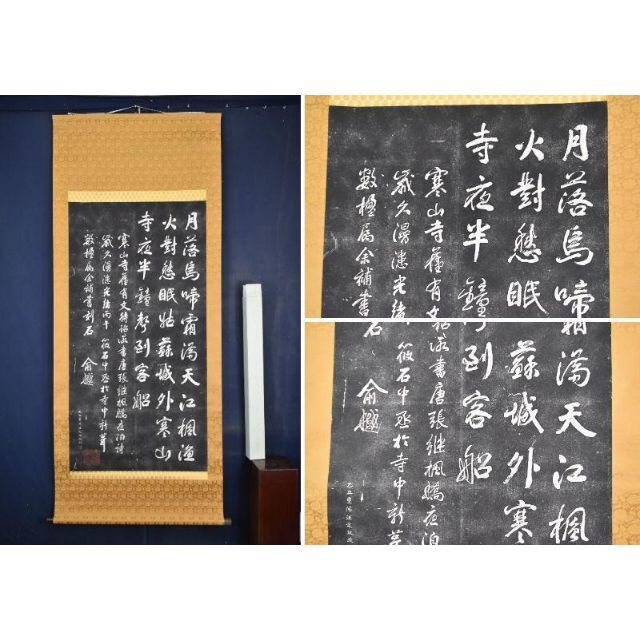 月落烏啼霜滿天江楓漁
火對愁眠姑蘇城外寒山
寺夜半鐘聲到客船
寒山寺舊有文待詔所書唐張繼楓橋夜泊詩
歲久漫漶光緒丙午筱石中丞於寺中新葺
數楹屬余補書刻石 俞樾
月落烏啼霜滿天江楓
火對愁眠
寺夜半鐘
寒山寺舊有文
歲久漫漶光緒
數楹屬余補書
蘇城外寒
聲到客船
書唐張繼楓橋夜泊
筱石中丞於寺中新葺
石 俞樾